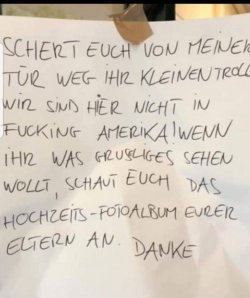 SCHERT EUCH VON MEINER
TÜR WEG IHR KLEINEN TROLL
WIR SIND HIER NICHT IN
FUCKING AMERIKA! WENN
IHR WAS GRUSLIGES SEHEN
WOLLT, SCHAUT EUCH DAS
HOCHZEITS-FOTOALBUM EURER
ELTERN AN. DANKE